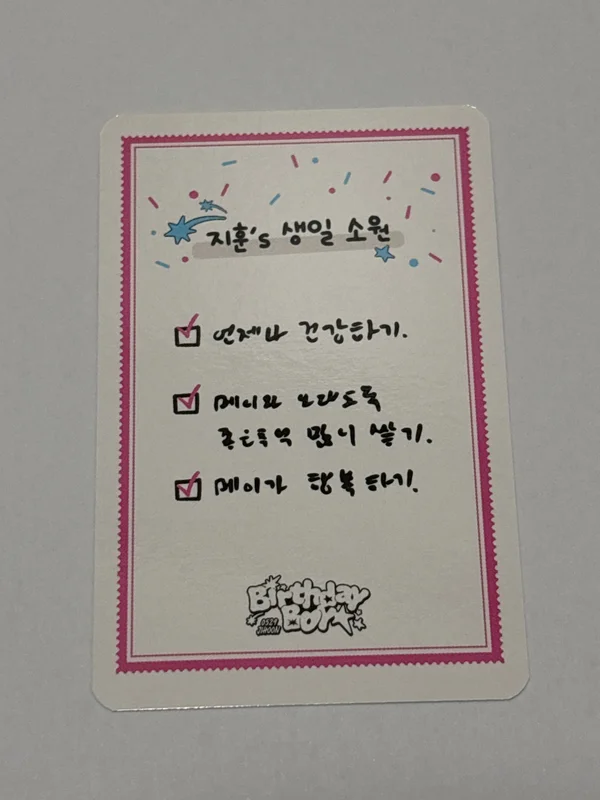 지훈's 생일 소원
언제나 건강하기.
메이와 오래도록
좋은추억 많이 쌓기.
메이가 행복하기.
Birthday
Boy
0529
JIHOON